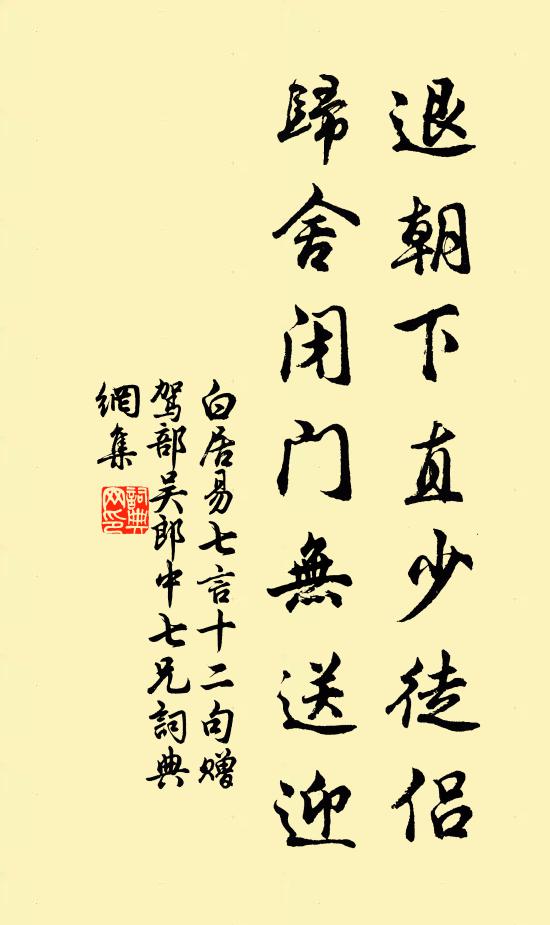 退朝下直少徒侣
歸舍闭門無送迎
白居易七言十二句赠
駕部吴郎中七兄詞典
網集
詞典
网印